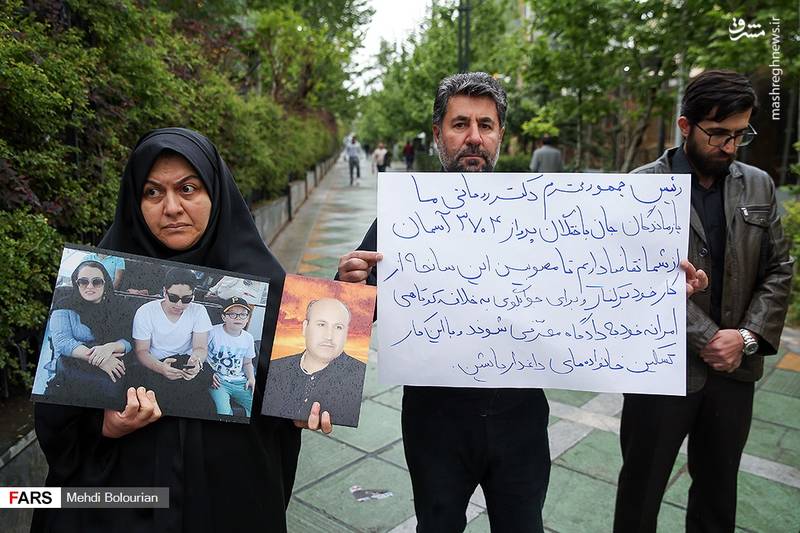 مشرق
mashreghnews.ir
رئیس جمهور محترم دکتر روحانی ما
بازماندگان جان باختگان پرواز ۳۷۰۴ آسمان
از شما تقاضا داریم تا این سانحه از
کار خود برکنار و برای جوابگوی به خلاف کوتاهی
خود به دادگاه معرفی شوند و با این کار
تسکین خانواده های داغدار باشین.
FARS Mehdi Bolourian